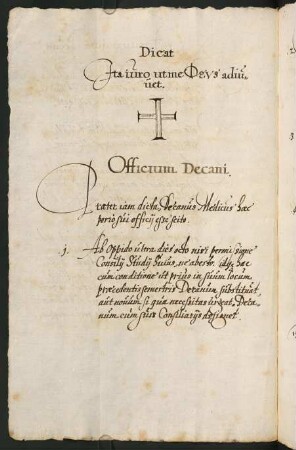 Dicat
Ita iuro, ut me Deus adiu-
uet.
Officium Decani.
Præter iam dicta, Decanus Medicus hæc
officij esse scito.
1. Ab oppido ultra dies octo nisi permissione
Consilij Studij huius, ne abesto, idque hac
cum conditione ut prius in suum locum
præcedentis semestris Decanum substituat,
aut nouum si quæ necessitas urgeat, Deca-
num cum suis Consiliarijs designet.